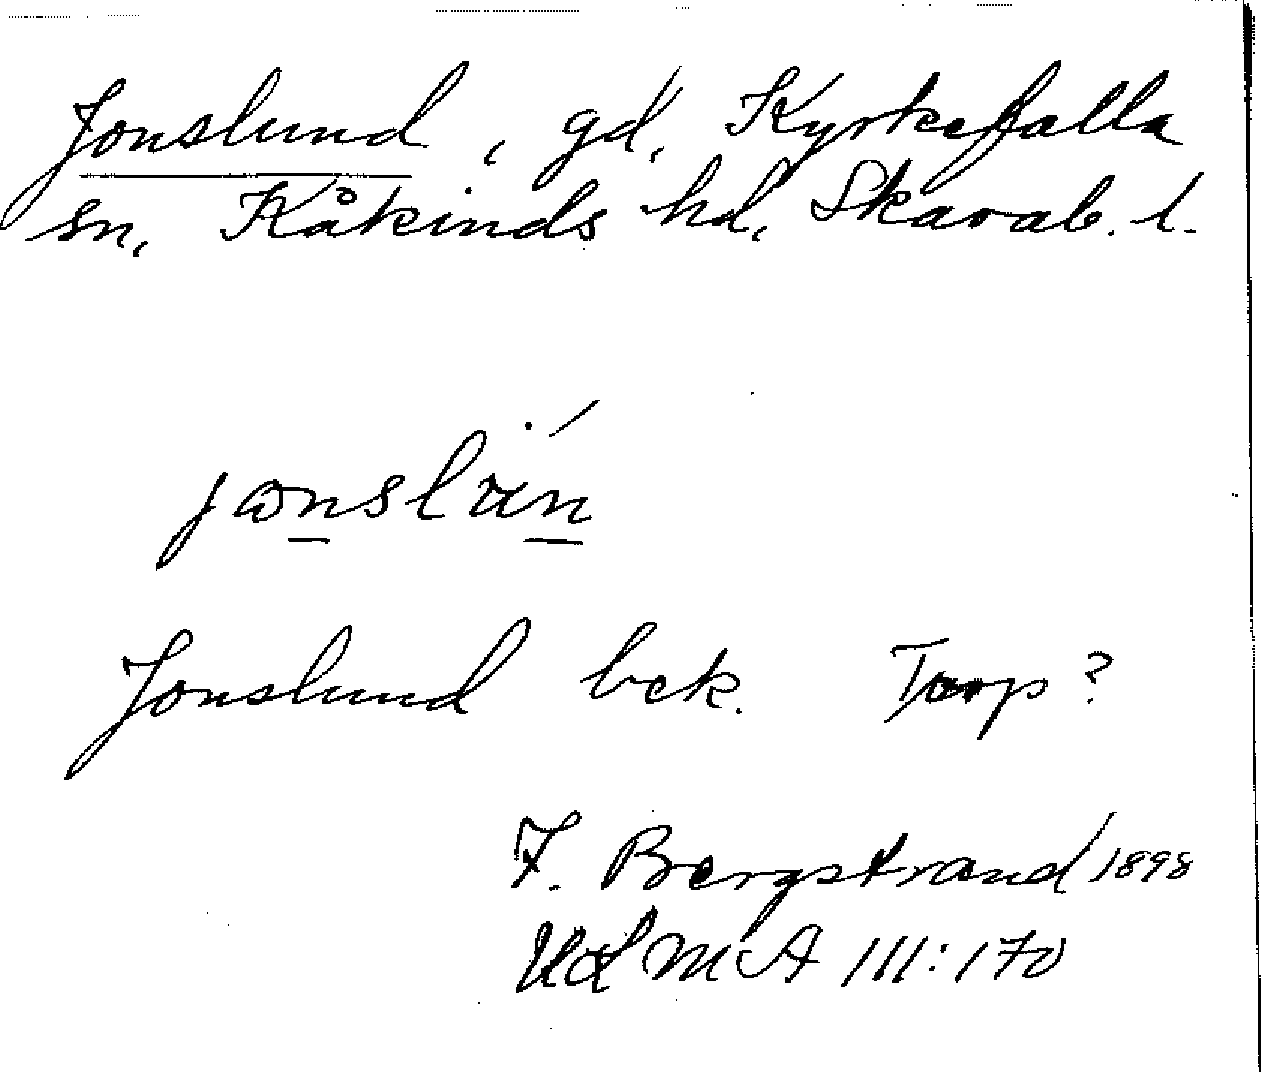 Jonslund, gd, Kyrkefalla
sn, Kåkinds hd, Skarab. l.
Jonslund bek. Torp?
F. Bergstrand 1898
III:170